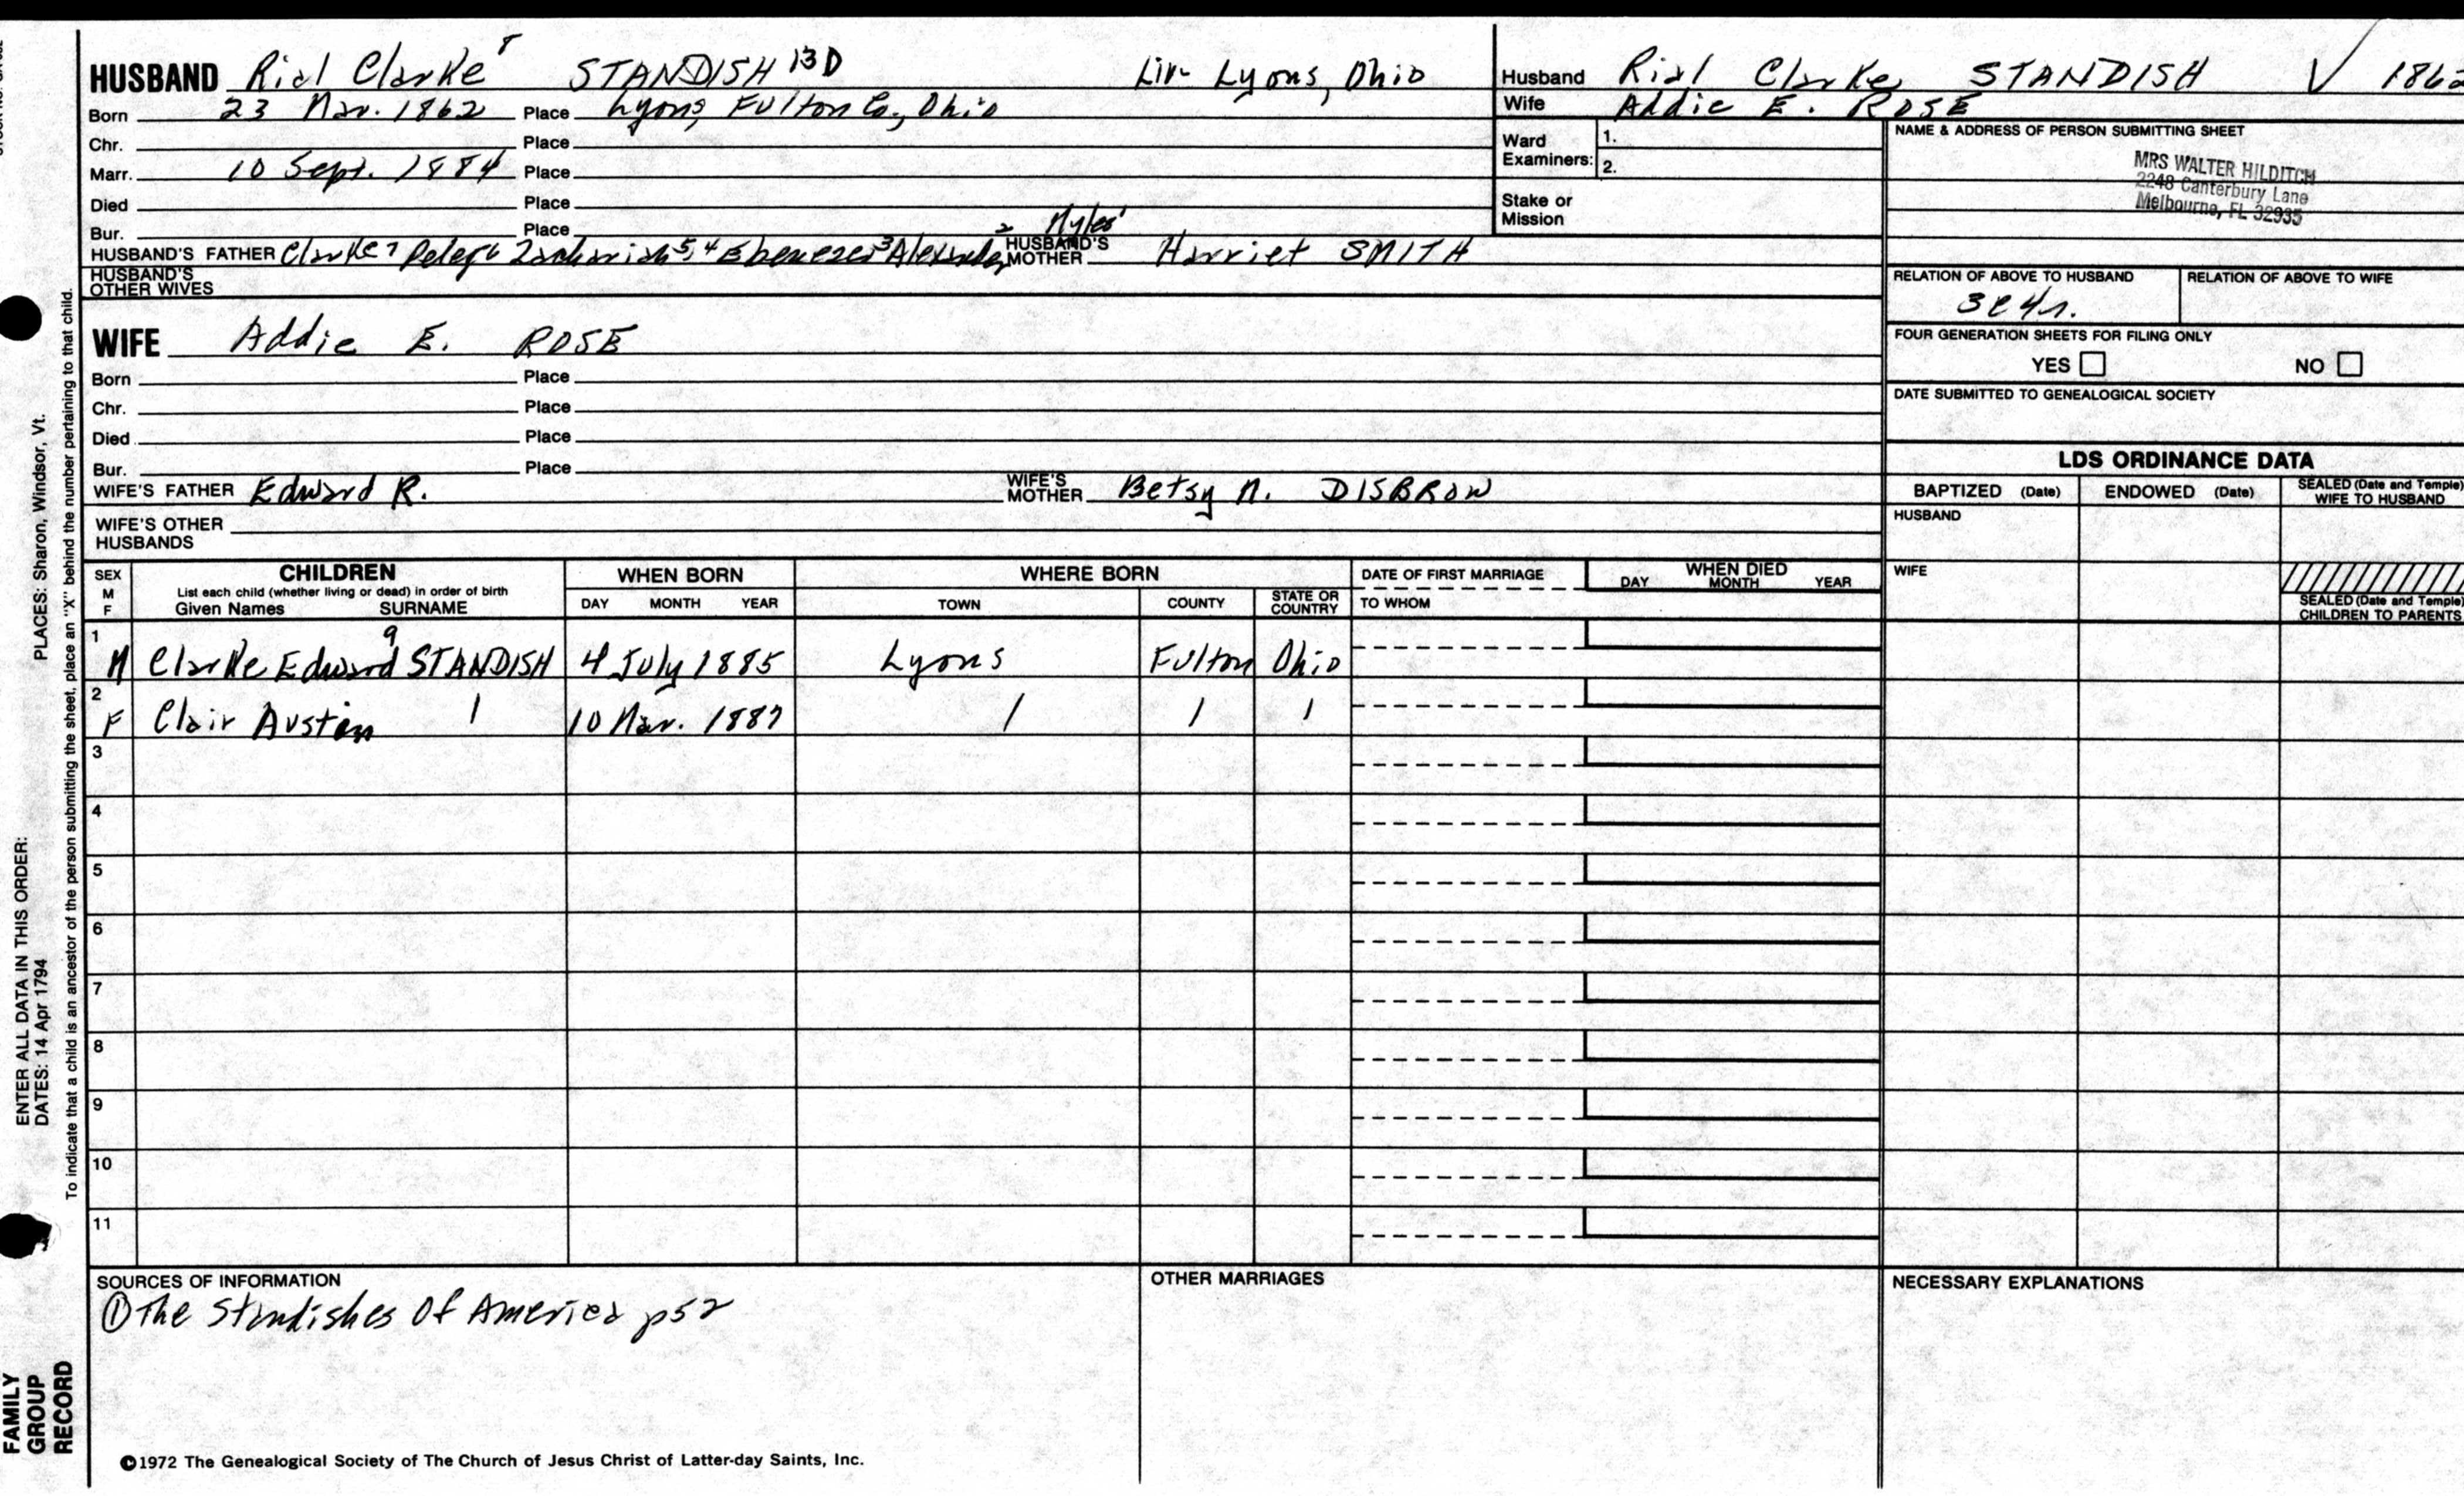 HUSBAND Rial Clarke 8 STANDISH 13D Liv- Lyons, Ohio
Born 23 Mar. 1862 Place Lyons, Fulton Co., Ohio
Chr. Place
Marr. 10 Sept. 1884 Place
Died Place
Bur. Place
HUSBAND'S FATHER Clarke 7 Peleg 6 Zachariah 5,4 Ebenezer 3 Alexander 2 Myles 1 HUSBAND'S MOTHER Harriet SMITH
HUSBAND'S OTHER WIVES
WIFE Addie E. ROSE
Born Place
Chr. Place
Died Place
Bur. Place
WIFE'S FATHER Edward R. WIFE'S MOTHER Betsy M. DISBROW
WIFE'S OTHER HUSBANDS
Husband Rial Clarke STANDISH V 1862
Wife Addie E. ROSE
Ward Examiners: 1.
2.
Stake or Mission
NAME & ADDRESS OF PERSON SUBMITTING SHEET
MRS WALTER HILDITCH
2248 Canterbury Lane
Melbourne, FL 32935
RELATION OF ABOVE TO HUSBAND RELATION OF ABOVE TO WIFE
3c4r.
FOUR GENERATION SHEETS FOR FILING ONLY
YES NO
DATE SUBMITTED TO GENEALOGICAL SOCIETY
LDS ORDINANCE DATA
BAPTIZED (Date) ENDOWED (Date) SEALED (Date and Temple) WIFE TO HUSBAND
HUSBAND
WIFE
SEALED (Date and Temple) CHILDREN TO PARENTS
SEX M F CHILDREN WHEN BORN WHERE BORN DATE OF FIRST MARRIAGE WHEN DIED
List each child (whether living or dead) in order of birth
Given Names SURNAME DAY MONTH YEAR TOWN COUNTY STATE OR COUNTRY TO WHOM DAY MONTH YEAR
1 M Clarke Edward 9 STANDISH 4 July 1885 Lyons Fulton Ohio
2 F Clair Austin / 10 Mar. 1887 / / /
3
4
5
6
7
8
9
10
11
SOURCES OF INFORMATION
① The Standishes Of America p52
OTHER MARRIAGES
NECESSARY EXPLANATIONS
©1972 The Genealogical Society of The Church of Jesus Christ of Latter-day Saints, Inc.
ENTER ALL DATA IN THIS ORDER:
DATES: 14 Apr 1794 PLACES: Sharon, Windsor, Vt.
To indicate that a child is an ancestor of the person submitting the sheet, place an "X" behind the number pertaining to that child.
FAMILY
GROUP
RECORD